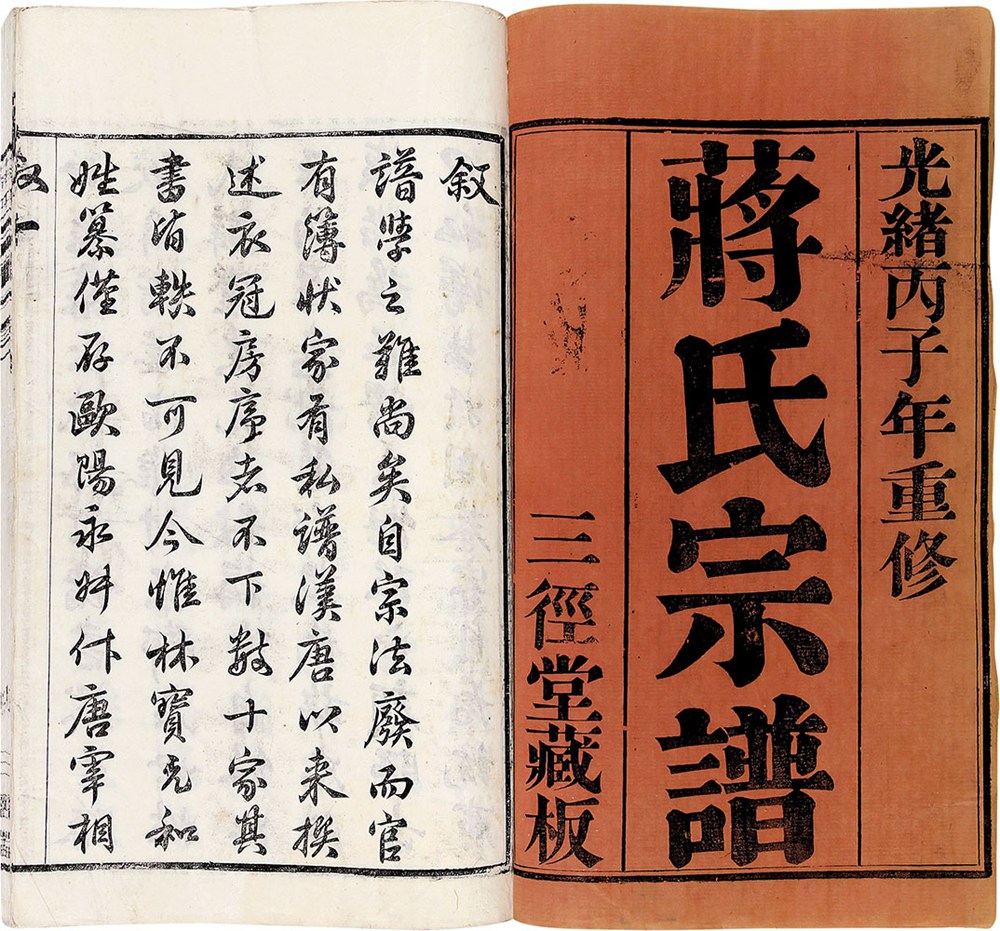 光緒丙子年重修
蔣氏宗譜
三徑堂藏板
叙
譜學之難尚矣自宗法廢而官
有簿狀家有私譜漢唐以来撰
述衣冠房序者不下數十家其
書皆軼不可見今惟林寶元和
姓纂僅存歐陽永叔作唐宰相
叙 一